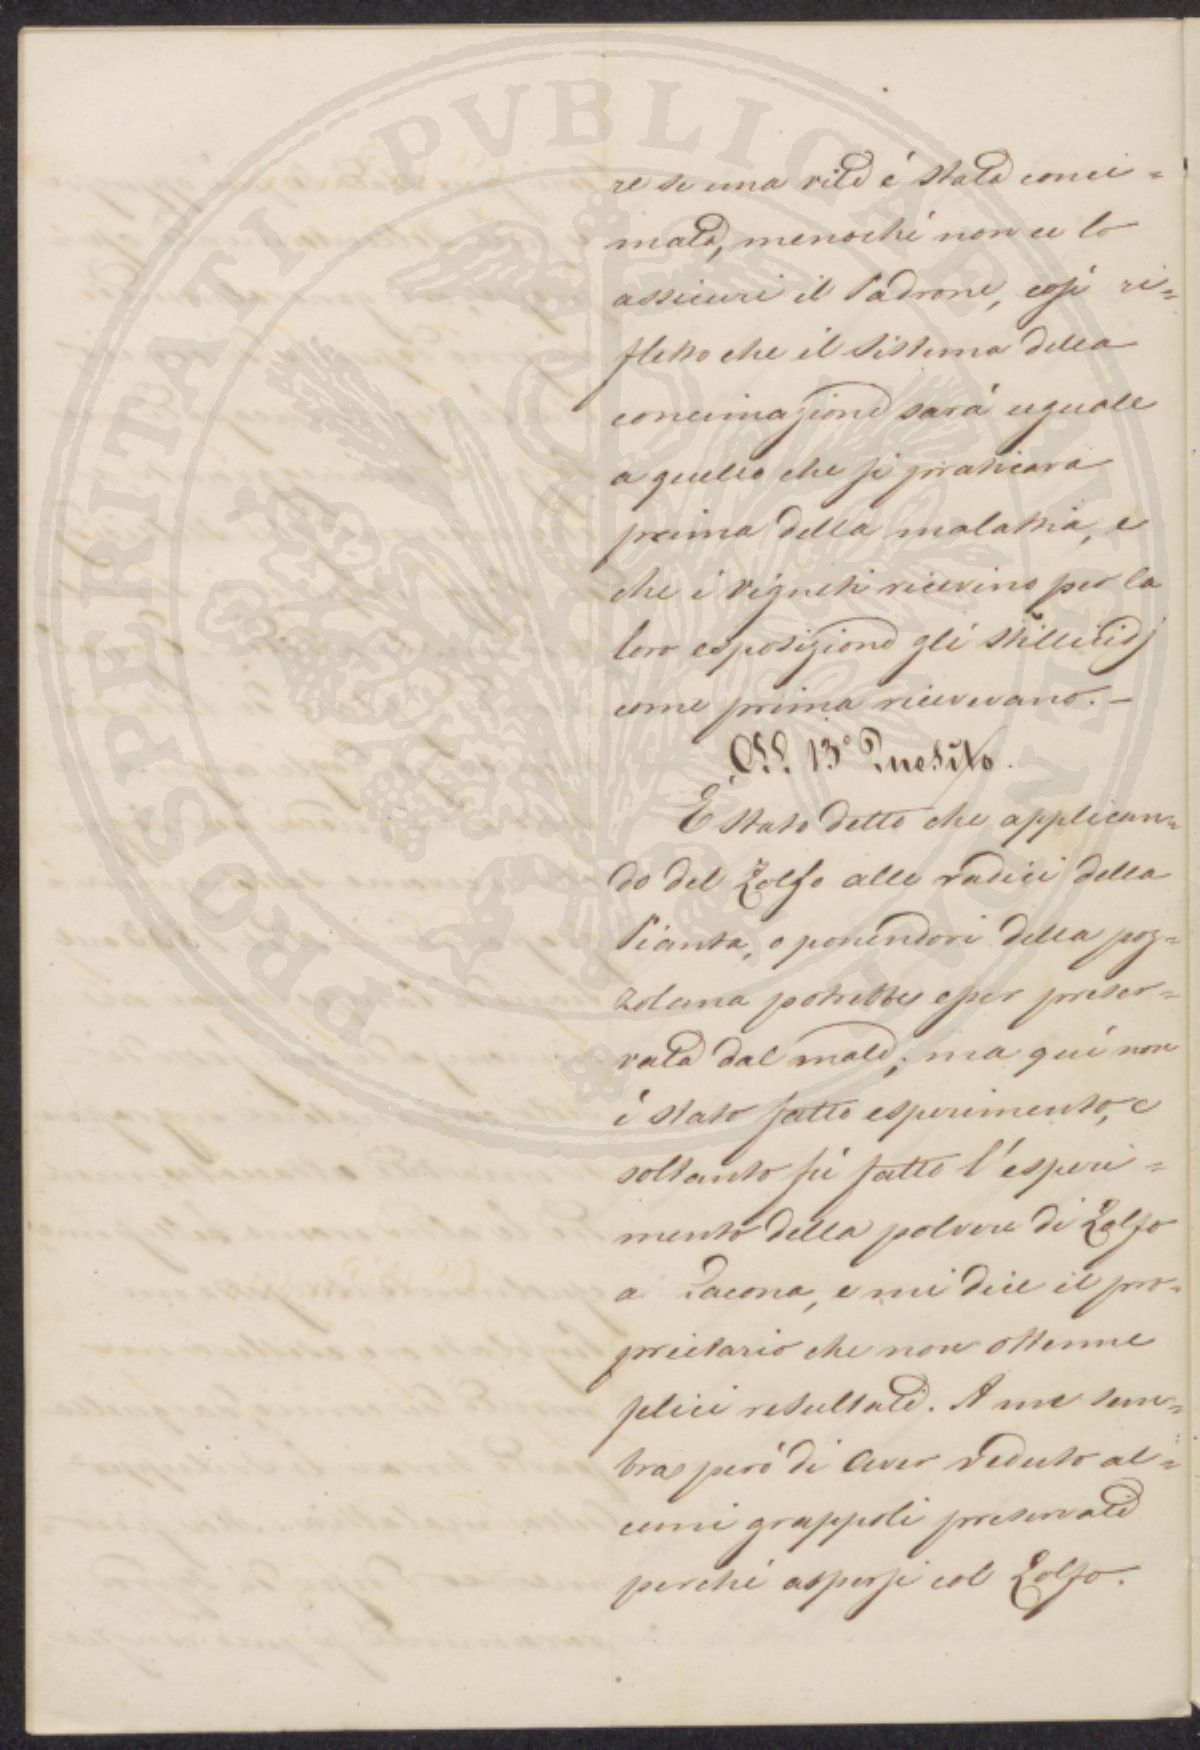 re se una vite é stata conci=
mata, menoché non ce lo
assicuri il Padrone, così ri=
fletto che il sistema della
concimazione sará uguale
a quello che si praticava
prima della malattia, e
che i vigneti ricevino per la
loro esposizione gli stillicidj
come prima ricevevano. -
All. 13° Quesito.
É stato detto che applican=
do del Zolfo alle radici della
Pianta, o ponendovi della poz=
zolana potrebbe esser preser=
vata dal male; ma qui non
é stato fatto esperimento, e
soltanto fú fatto l'esperi=
mento della polvere di Zolfo
a Lacona, e mi dice il pro=
prietario che non ottenne
felici resultati. A me sem=
bra peró di aver veduto al=
cuni grappoli preservati
perché aspersi col Zolfo.
PROSPERITATI PVBLICAE